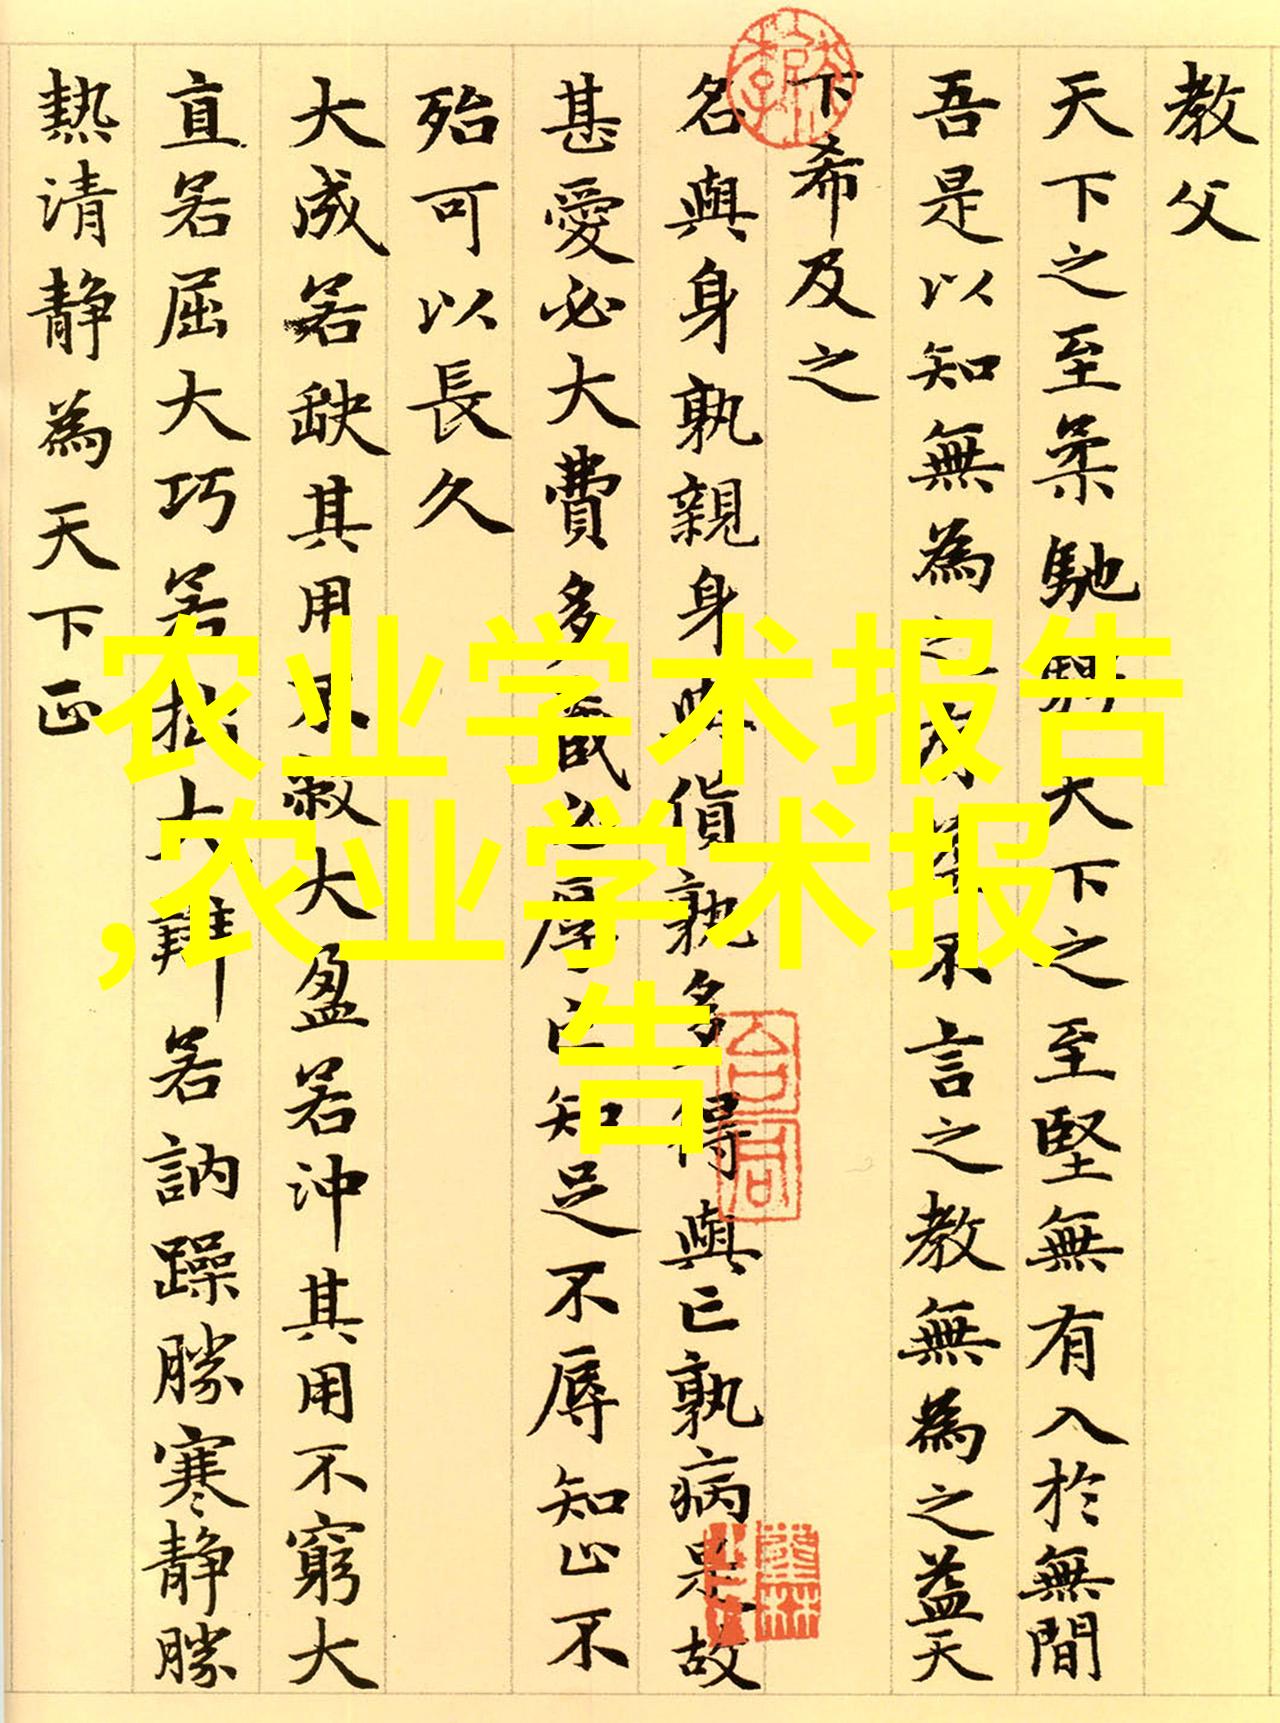 教父
天下之至柔馳騁天下之至堅無有入於無間
吾是以知無為之有益不言之教無為之益天
下希及之
名與身孰親身與貨孰多得與亡孰病是故
甚愛必大費多藏必厚亡知足不辱知止不
殆可以長久
大成若缺其用不敝大盈若沖其用不窮大
直若屈大巧若拙大辯若訥躁勝寒靜勝
熱清靜為天下正
农业学术报告
,农业学术报
告